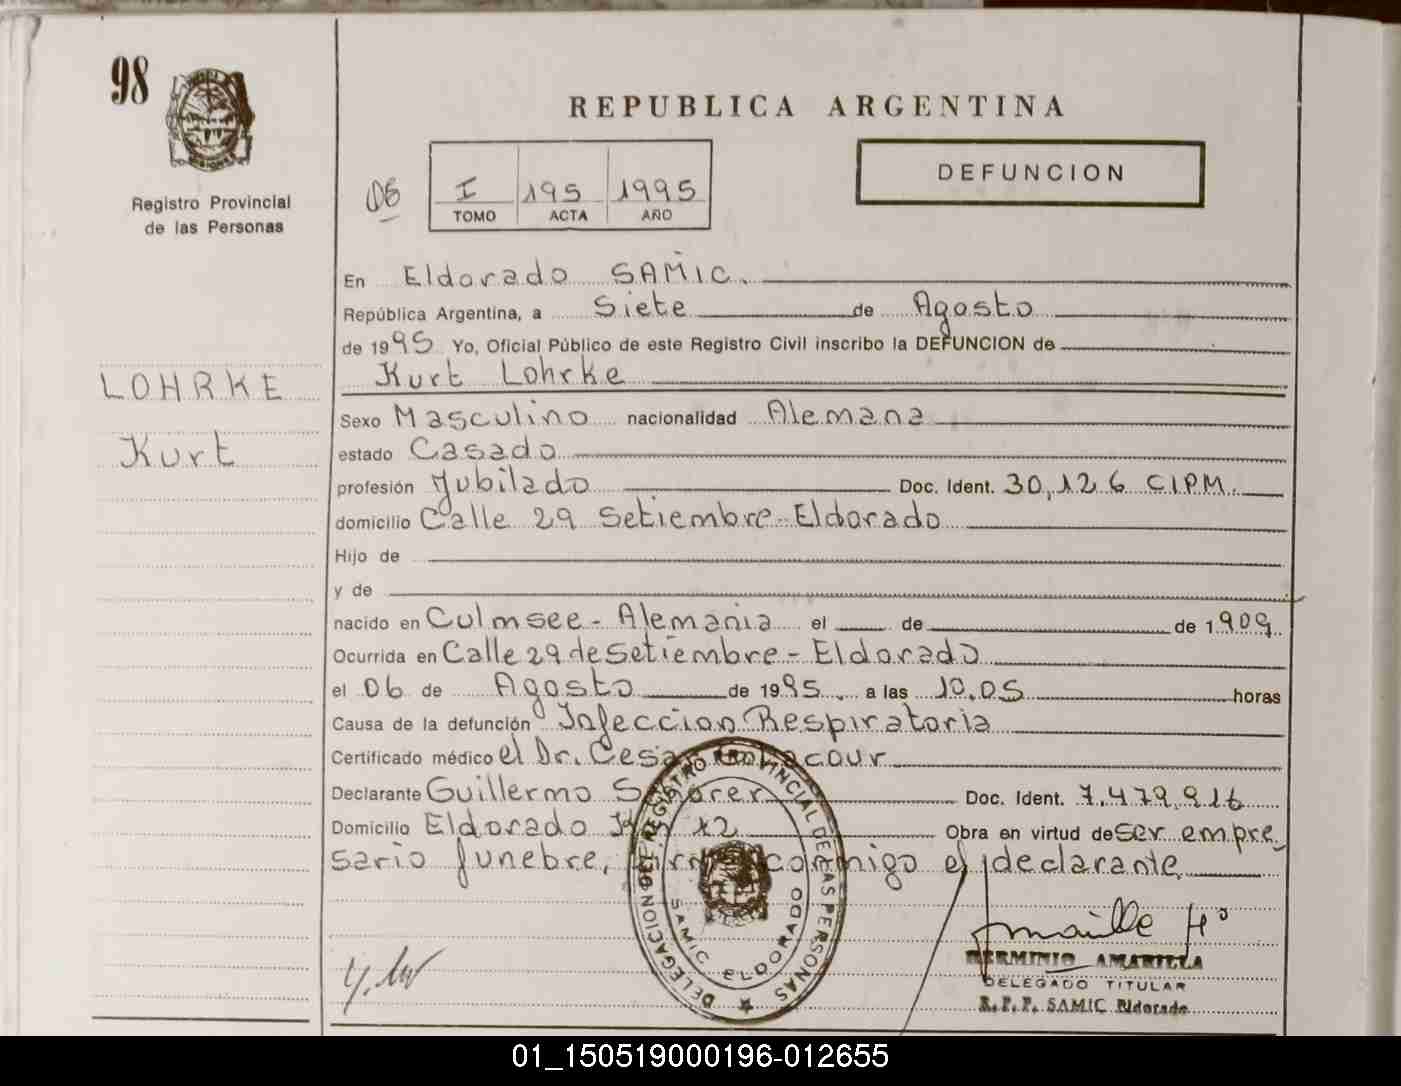 98
REPUBLICA ARGENTINA
DEFUNCION
Registro Provincial
de las Personas
06
I 195 1995
TOMO ACTA AÑO
En Eldorado SAMIC.
República Argentina, a Siete de Agosto
de 1995 Yo, Oficial Público de este Registro Civil inscribo la DEFUNCION de
Kurt Lohrke
LOHRKE
Kurt
Sexo Masculino nacionalidad Alemana
estado Casado
profesión Jubilado Doc. Ident. 30,126 CIPM.
domicilio Calle 29 Setiembre-Eldorado
Hijo de
y de
nacido en Culmsee - Alemania el de de 1909
Ocurrida en Calle 29 de Setiembre - Eldorado
el 06 de Agosto de 1995 a las 10.05 horas
Causa de la defunción Infeccion Respiratoria
Certificado médico el Dr. Cesar
Declarante Guillermo Doc. Ident. 7.479.916
Domicilio Eldorado Km 12 Obra en virtud de ser empre
sario funebre, firma conmigo el declarante
DELEGACION DEL REGISTRO PROVINCIAL DE LAS PERSONAS
SAMIC ELDORADO
HERMINIO AMARILLA
DELEGADO TITULAR
R.P.P. SAMIC Eldorado
01_150519000196-012655